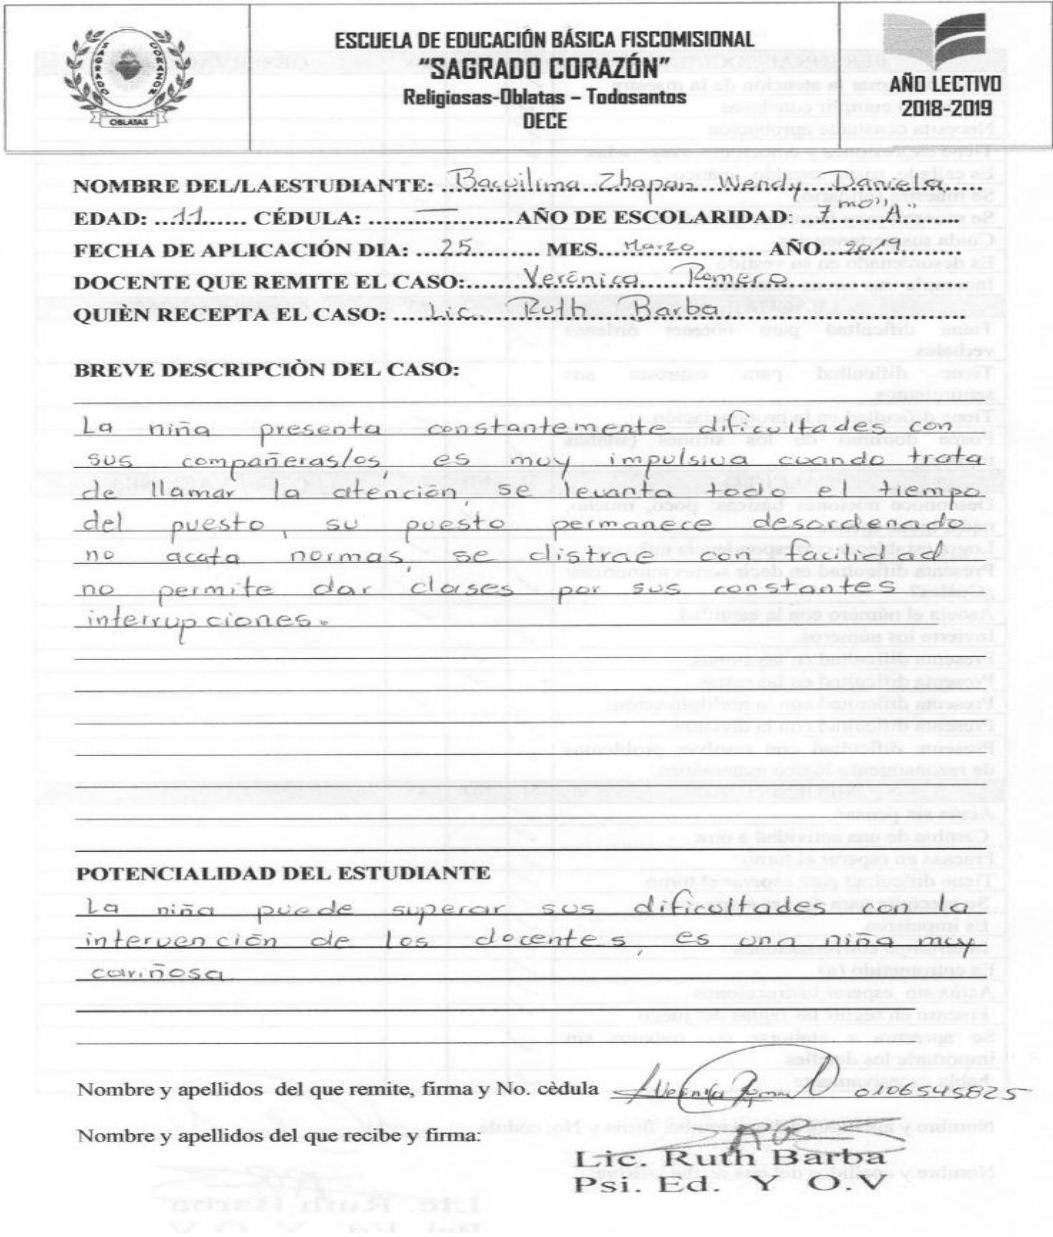 SAGRADO CORAZÓN
OBLATAS
ESCUELA DE EDUCACIÓN BÁSICA FISCOMISIONAL
"SAGRADO CORAZÓN"
Religiosas-Oblatas – Todosantos
DECE
AÑO LECTIVO
2018-2019
NOMBRE DEL/LAESTUDIANTE: Bacuilima Zhapan Wendy Daniela
EDAD: 11 CÉDULA: — AÑO DE ESCOLARIDAD: 7mo "A"
FECHA DE APLICACIÓN DIA: 25 MES. Marzo AÑO 2019
DOCENTE QUE REMITE EL CASO: Verónica Romero
QUIÈN RECEPTA EL CASO: Lic. Ruth Barba
BREVE DESCRIPCIÒN DEL CASO:
La niña presenta constantemente dificultades con
sus compañeras/os, es muy impulsiva cuando trata
de llamar la atención, se levanta todo el tiempo
del puesto, su puesto permanece desordenado
no acata normas, se distrae con facilidad
no permite dar clases por sus constantes
interrupciones.
POTENCIALIDAD DEL ESTUDIANTE
La niña puede superar sus dificultades con la
intervención de los docentes, es una niña muy
cariñosa
Nombre y apellidos del que remite, firma y No. cèdula 0106545825
Nombre y apellidos del que recibe y firma:
Lic. Ruth Barba
Psi. Ed. Y O.V